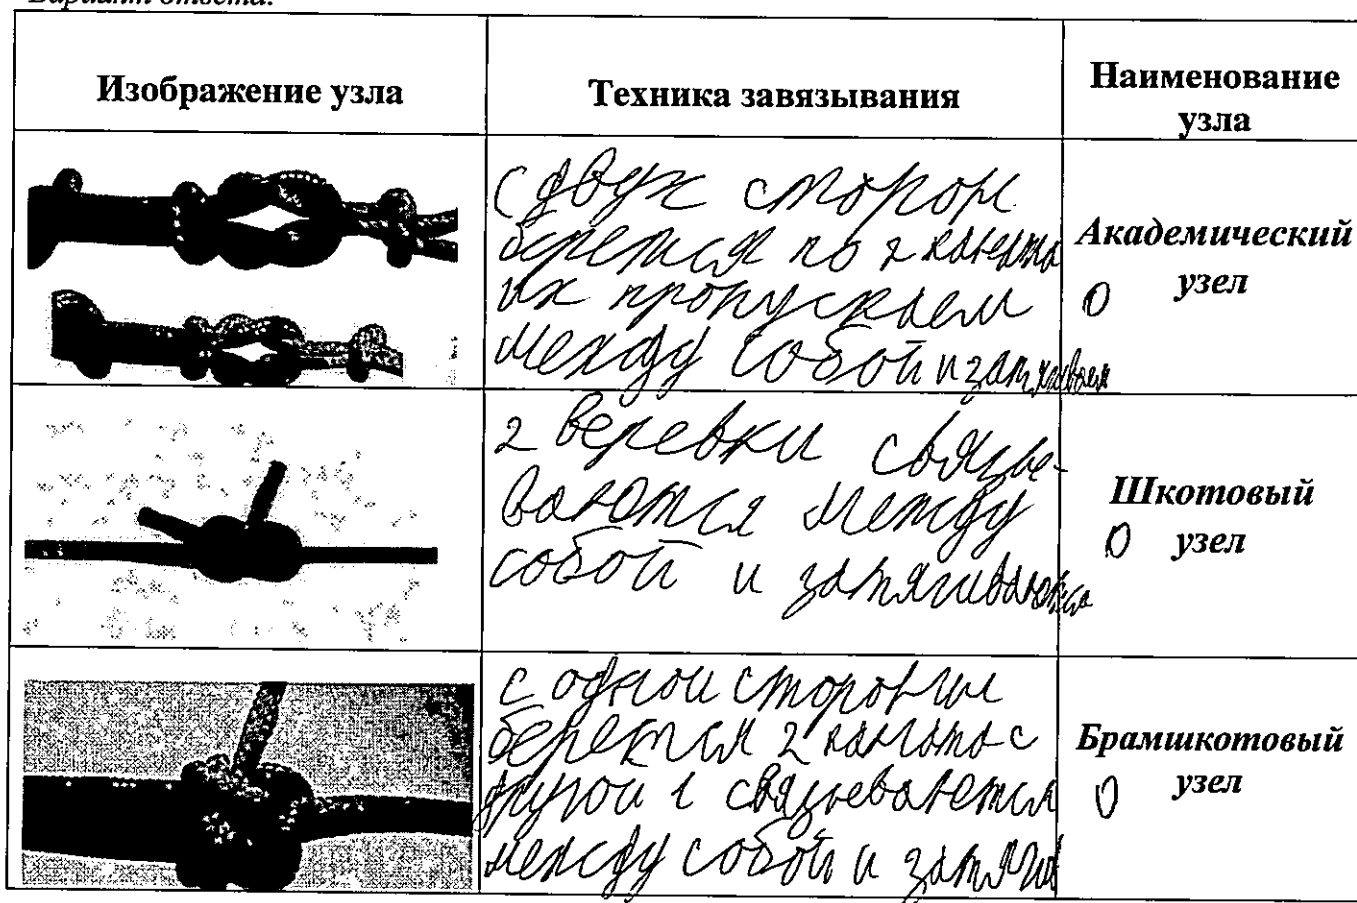 Вариант ответа:
Изображение узла
Техника завязывания
Наименование
узла
с двух сторон
берется по 2 каната
их пропускаем
между собой и затягиваем
Академический
0 узел
2 веревки связы-
ваются между
собой и затягиваются
Шкотовый
0 узел
с одной стороны
берется 2 каната с
другой 1 связывается
между собой и затягив
Брамшкотовый
0 узел